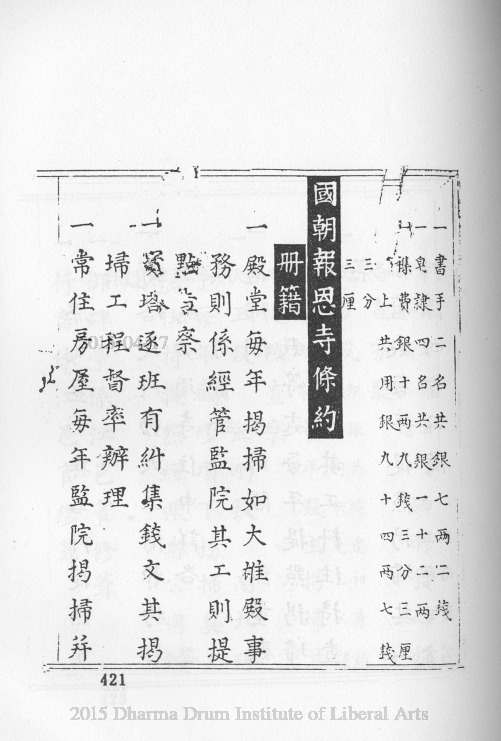 一書手二名共銀七兩二錢
一皂隸四名共銀一十二兩
一襍費銀十兩九錢三分三厘
以上共用銀九十四兩七錢
三分
三厘
國朝報恩寺條約
冊籍
一殿堂每年揭掃如大雄殿事
務則係經管監院其工則提
點言察
一寶塔逐班有糾集錢文其揭
掃工程督率辦理
一常住房屋每年監院揭掃并
421
2015 Dharma Drum Institute of Liberal Arts